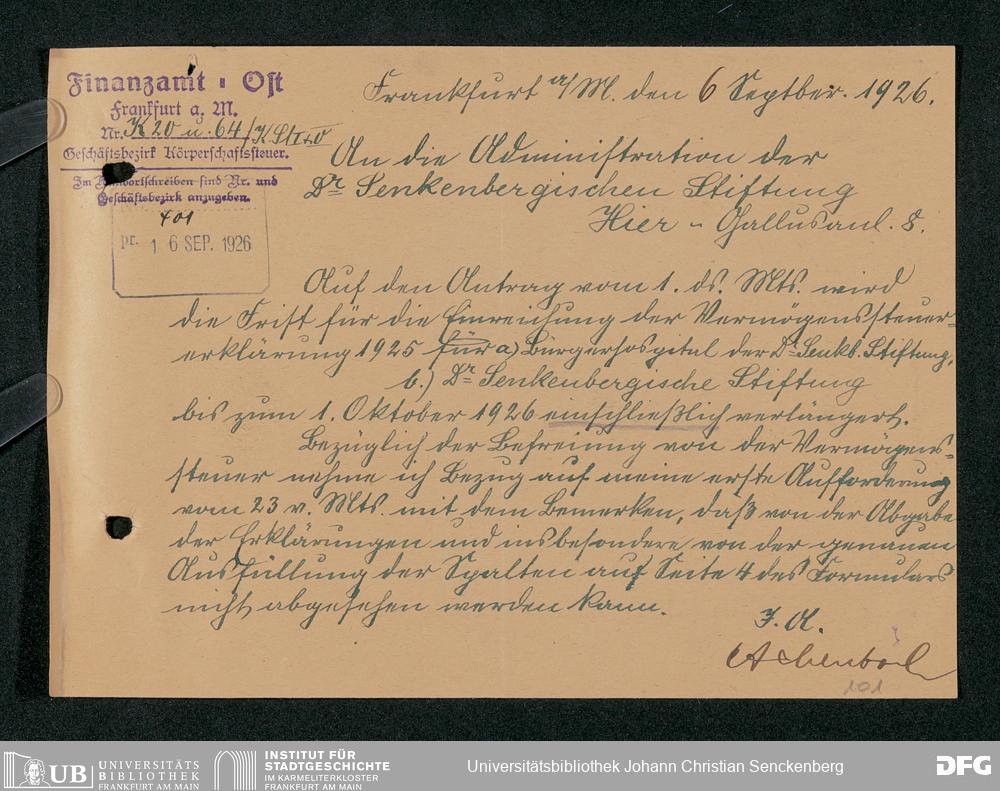 Finanzamt Ost
Frankfurt a. M.
Nr. K 20 u. 64/K St I 20
Geschäftsbezirk Körperschaftssteuer.
Im Antwortschreiben sind Nr. und
Geschäftsbezirk anzugeben.
401
pr. 16 SEP. 1926
Frankfurt a/M. den 6 Septber. 1926.
An die Administration der
Dr. Senkenbergischen Stiftung
Hier - Gallusanl. 8.
Auf den Antrag vom 1. ds. Mts. wird
die Frist für die Einreichung der Vermögenssteuer-
erklärung 1925 für a) Bürgerhospital der Dr. Senkb. Stiftung,
b.) Dr. Senkenbergische Stiftung
bis zum 1. Oktober 1926 einschließlich verlängert.
Bezüglich der Befreiung von der Vermögens-
steuer nehme ich Bezug auf meine erste Aufforderung
vom 23 v. Mts. mit dem Bemerken, daß von der Abgabe
der Erklärungen und insbesondere von der genauen
Ausfüllung der Spalten auf Seite 4 des Formulars
nicht abgesehen werden kann.
I. A.
Achenbach
101
UB UNIVERSITÄTS
BIBLIOTHEK
FRANKFURT AM MAIN
INSTITUT FÜR
STADTGESCHICHTE
IM KARMELITERKLOSTER
FRANKFURT AM MAIN
Universitätsbibliothek Johann Christian Senckenberg
DFG